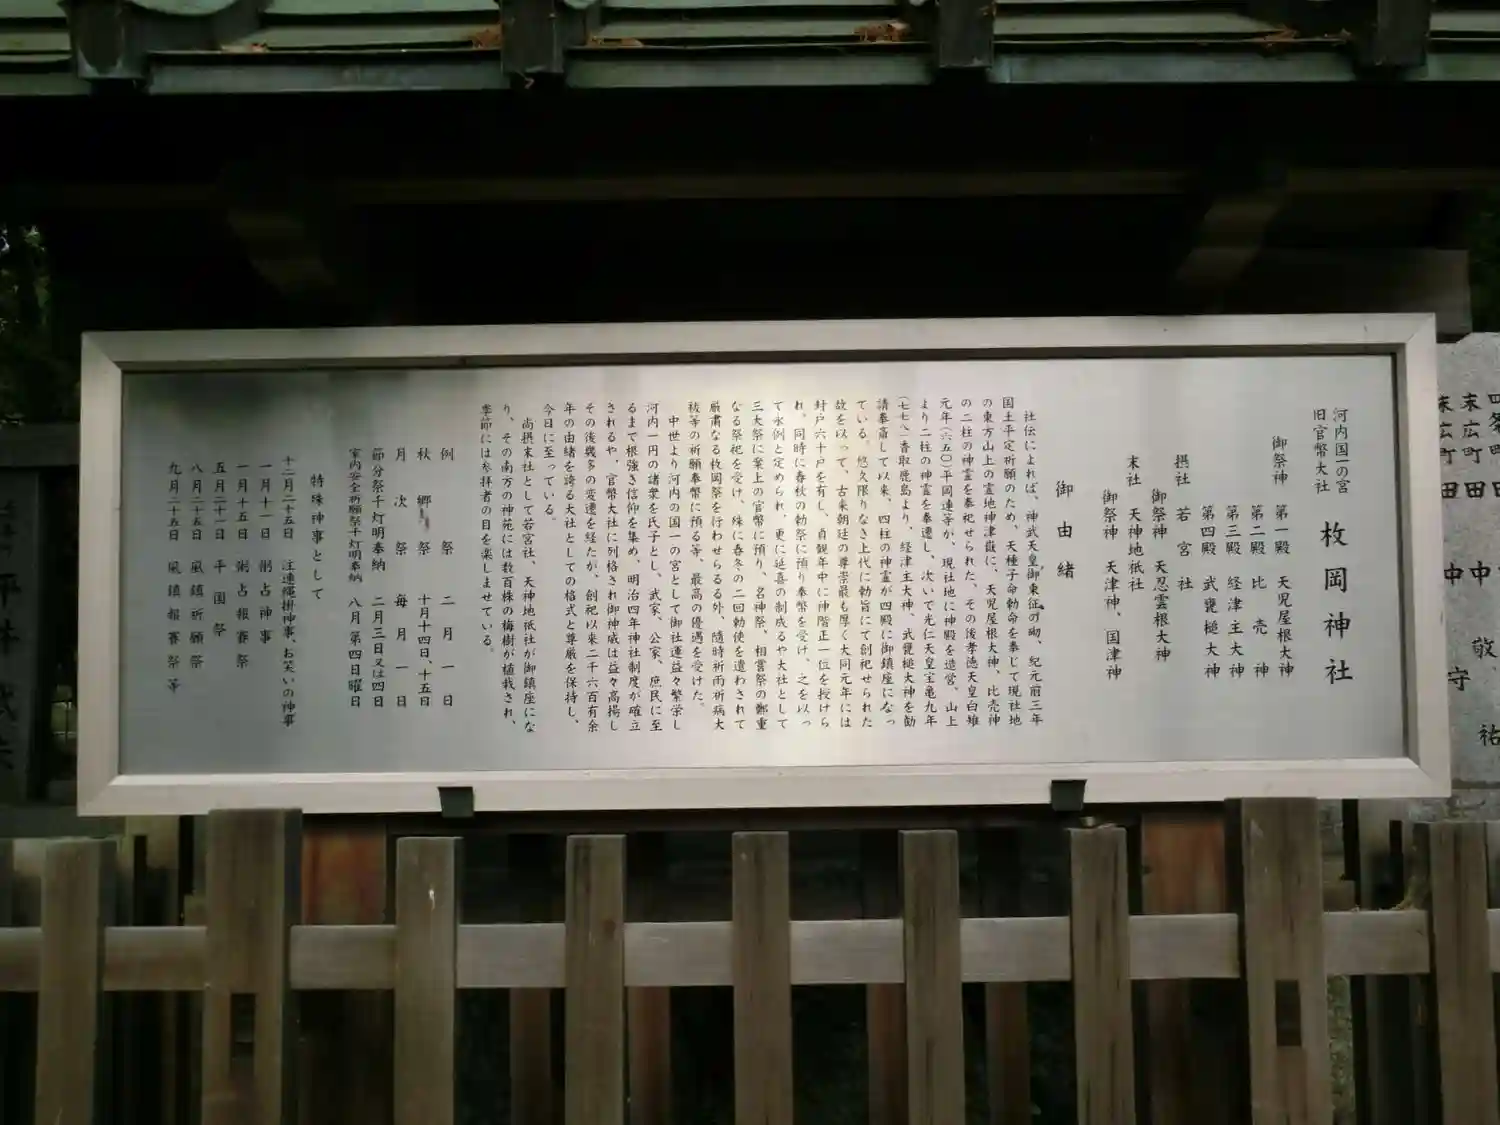 河内国一の宮
旧官幣大社
枚岡神社
御祭神 第一殿 天児屋根大神
第二殿 比売神
第三殿 経津主大神
第四殿 武甕槌大神
摂社 若宮社
御祭神 天忍雲根大神
末社 天神地祇社
御祭神 天津神、国津神
御由緒
社伝によれば、神武天皇御東征の砌、紀元前三年
国土平定祈願のため、天種子命勅命を奉じて現社地
の東方山上の霊地神津嶽に、天児屋根大神、比売神
の二柱の神霊を奉祀せられた。その後孝徳天皇白雉
元年(六五〇)平岡連等が、現社地に神殿を造営、山上
より二柱の神霊を奉遷し、次いで光仁天皇宝亀九年
(七七八)香取鹿島より、経津主大神、武甕槌大神を勧
請奉斎して以来、四柱の神霊が四殿に御鎮座になっ
ている。悠久限りなき上代に勅旨にて創祀せられた
故を以って、古来朝廷の尊崇最も厚く大同元年には
封戸六十戸を有し、貞観年中に神階正一位を授けら
れ、同時に春秋の勅祭に預り奉幣を受け、之を以っ
て永例と定められ、更に延喜の制成るや大社として
三大祭に案上の官幣に預り、名神祭、相嘗祭の鄭重
なる祭祀を受け、殊に春冬の二回勅使を遣わされて
厳粛なる枚岡祭を行わせらるる外、随時祈雨祈病大
祓等の祈願奉幣に預る等、最高の優遇を受けた。
中世より河内の国一の宮として御社運益々繁栄し
河内一円の諸衆を氏子とし、武家、公家、庶民に至
るまで根強き信仰を集め、明治四年神社制度が確立
されるや、官幣大社に列格され御神威は益々高揚し
その後幾多の変遷を経たが、創祀以来二千六百有余
年の由緒を誇る大社としての格式と尊厳を保持し、
今日に至っている。
尚摂末社として若宮社、天神地祇社が御鎮座にな
り、その南方の神苑には数百株の梅樹が植栽され、
季節には参拝者の目を楽しませている。
例祭 二月一日
秋郷祭 十月十四日、十五日
月次祭 毎月一日
節分祭千灯明奉納 二月三日又は四日
家内安全祈願祭千灯明奉納 八月第四日曜日
特殊神事として
十二月二十五日 注連縄掛神事、お笑いの神事
一月十一日 粥占神事
一月十五日 粥占報賽祭
五月二十一日 平国祭
八月二十五日 風鎮祈願祭
九月二十五日 風鎮報賽祭等